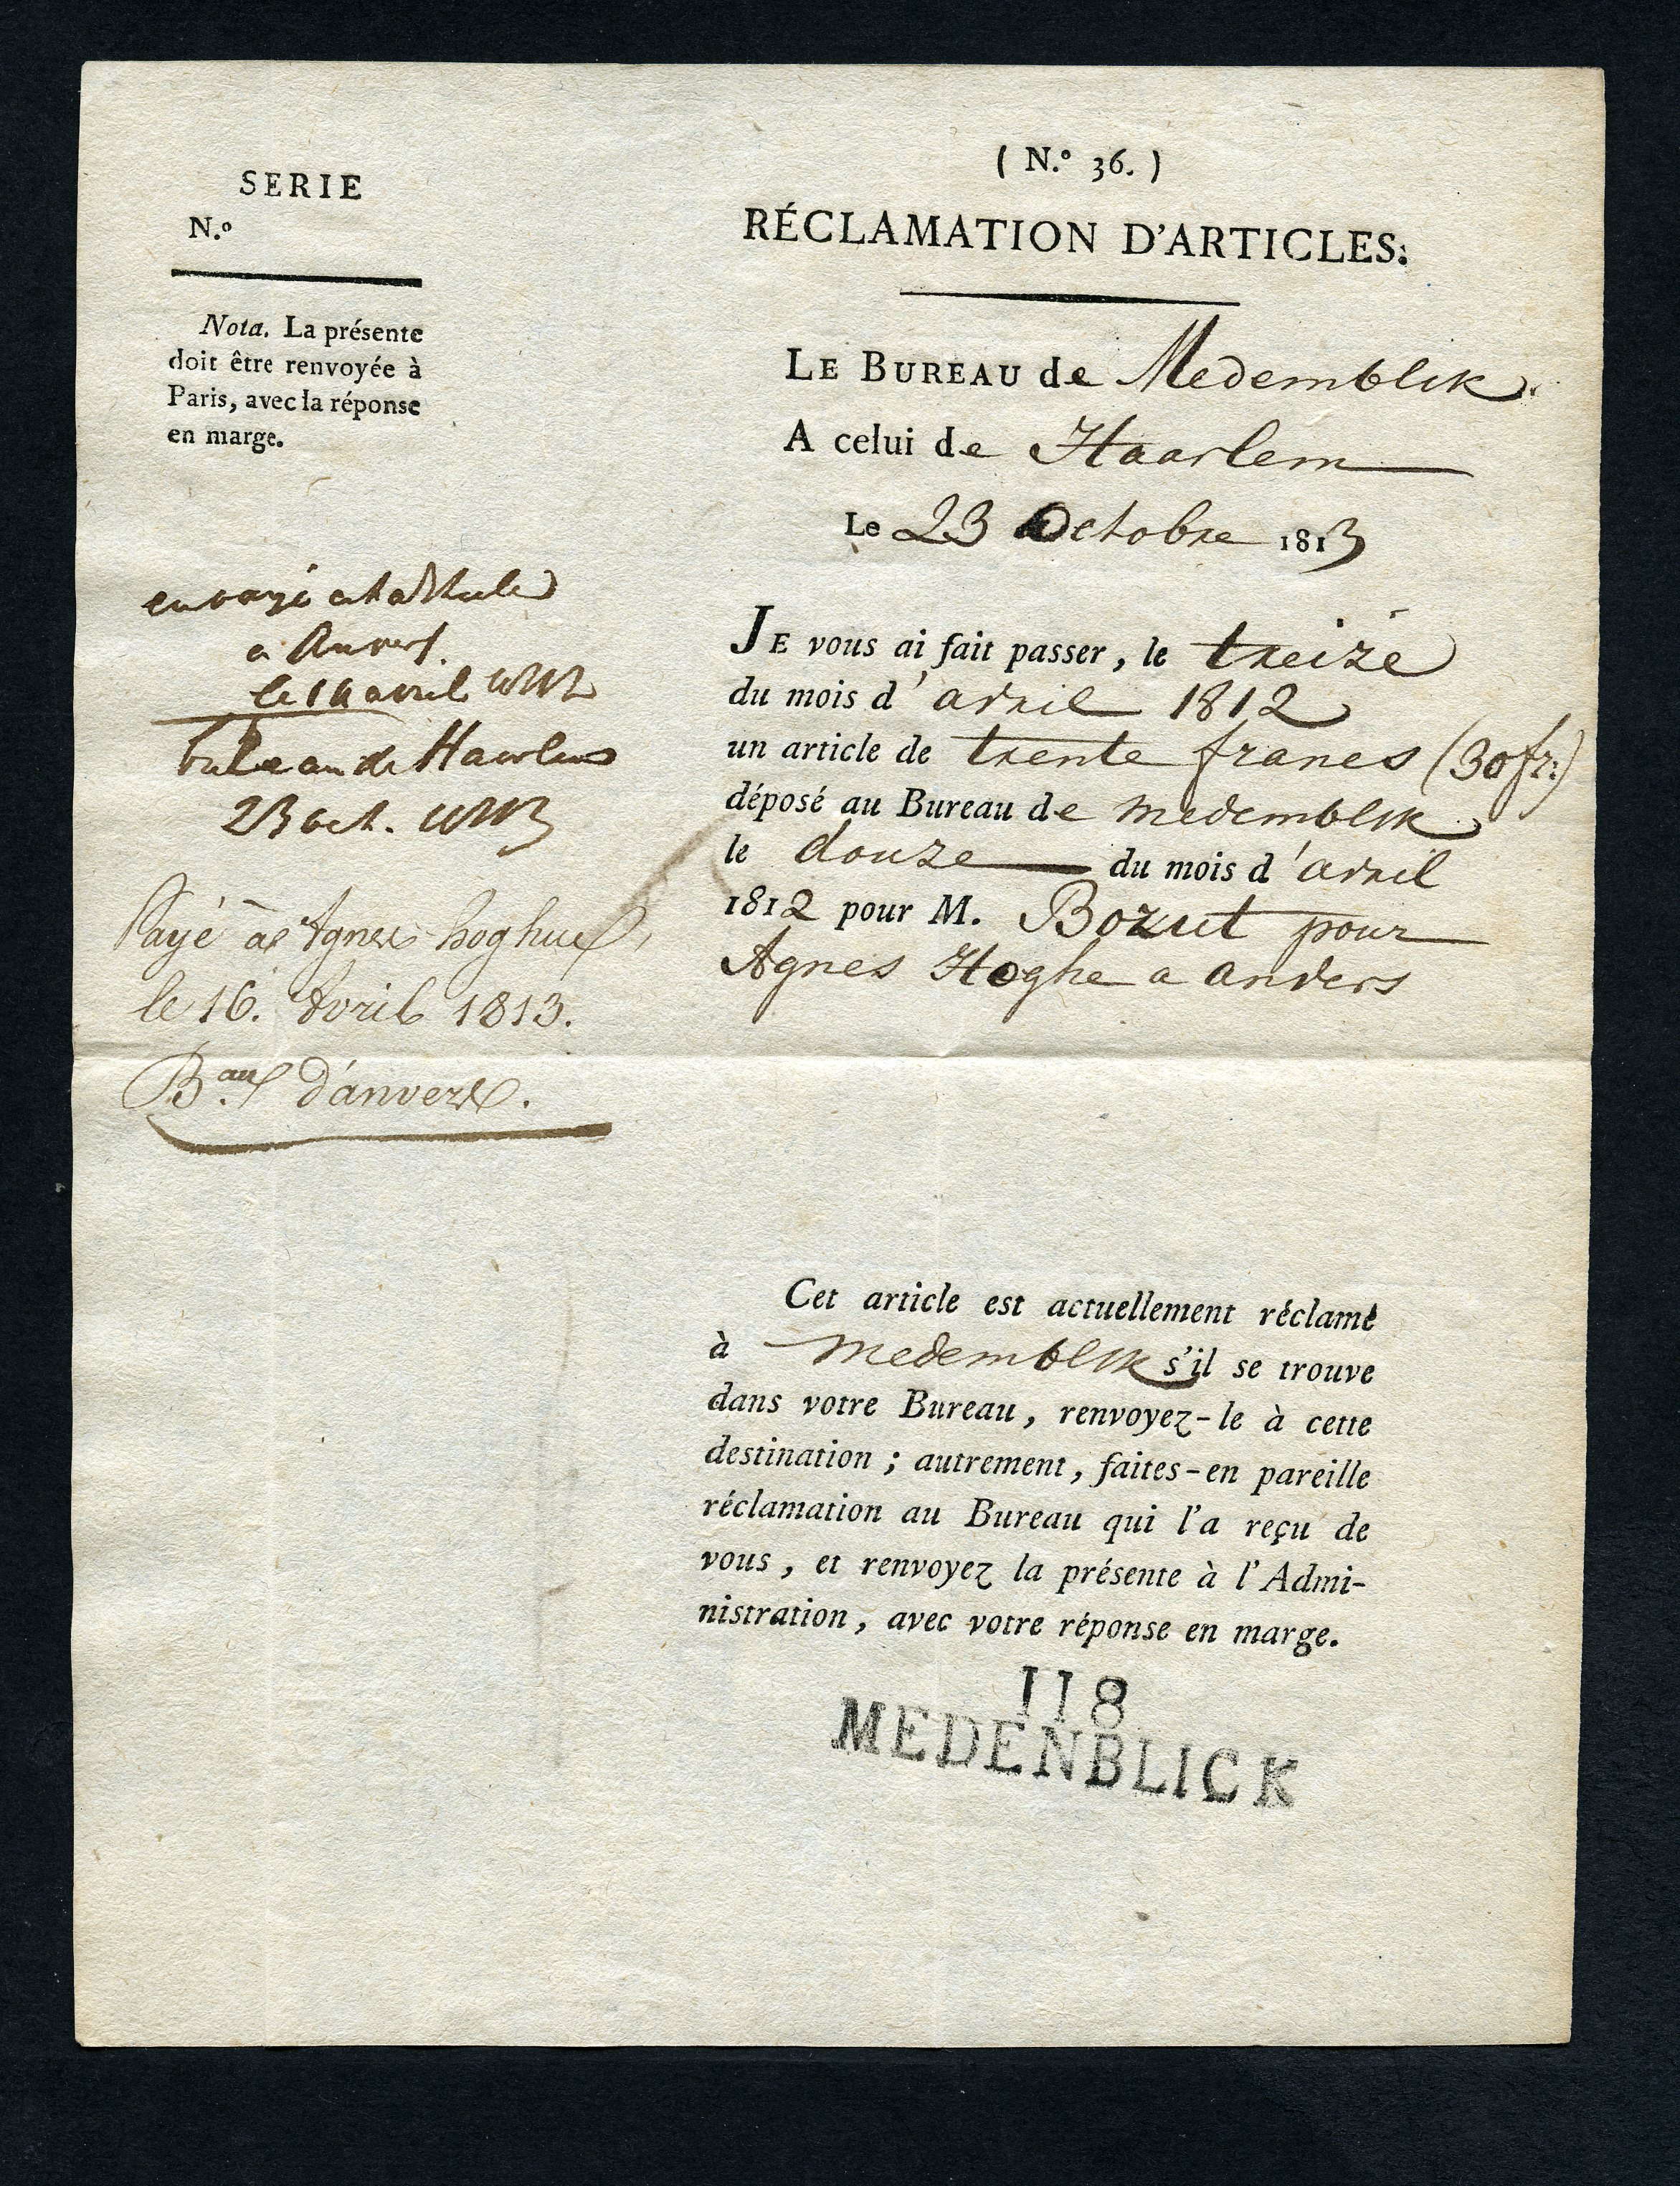 SERIE
N.o
Nota. La présente
doit être renvoyée à
Paris, avec la réponse
en marge.
( N.o 36. )
RÉCLAMATION D'ARTICLES:
LE BUREAU de Medemblik
A celui de Haarlem
Le 23 Octobre 1813
JE vous ai fait passer, le treize
du mois d'avril 1812
un article de trente francs (30 fr:)
déposé au Bureau de medemblik
le douze du mois d'avril
1812 pour M. Bozut pour
Agnes Hoghe a anvers
envoyé
a Anvers.
le 14 avril 1812
bureau de Haarlem
23 oct. 1813
Payé à Agnes hoghue
le 16. Avril 1813.
B.au d'anvers.
Cet article est actuellement réclamé
à medemblik s'il se trouve
dans votre Bureau, renvoyez-le à cette
destination ; autrement, faites-en pareille
réclamation au Bureau qui l'a reçu de
vous, et renvoyez la présente à l'Admi-
nistration, avec votre réponse en marge.
118
MEDENBLICK